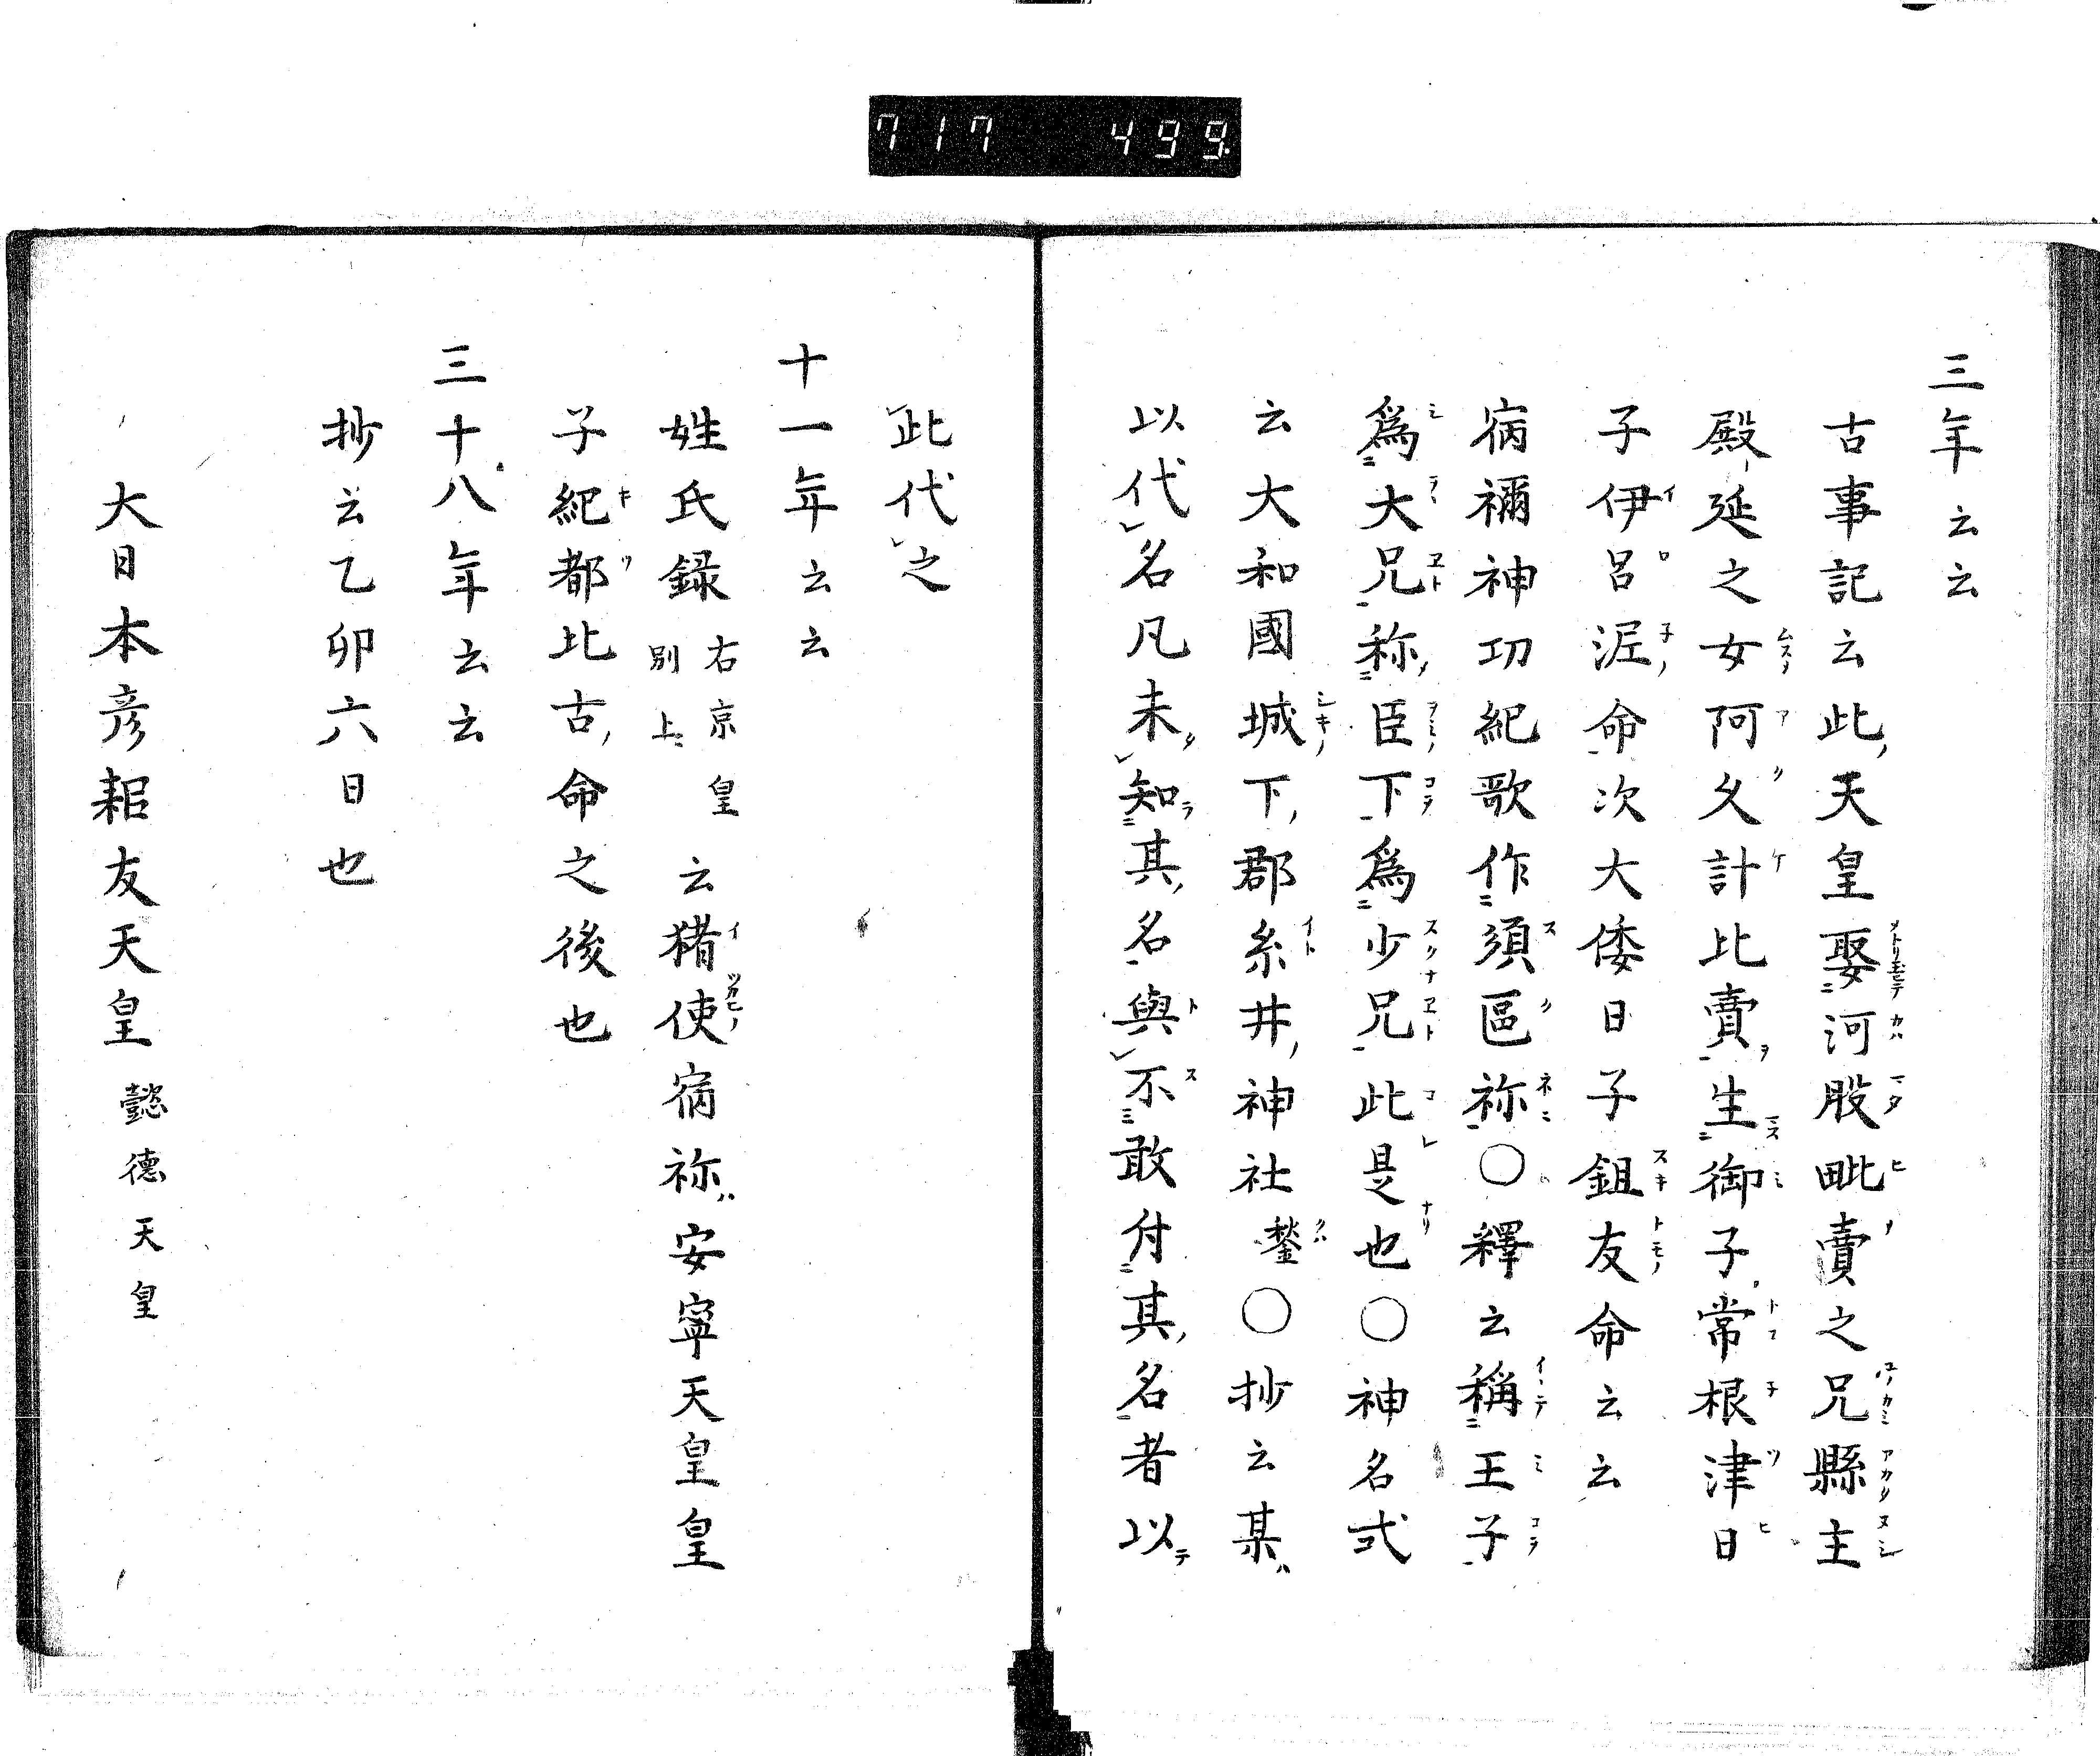 717 499
三年云云
古事記云此天皇娶河股毗賣之兄縣主
殿延之女阿久計比賣生御子常根津日
子伊呂泥命次大倭日子鉏友命云云
宿禰神功紀歌作須區祢〇釋云稱王子
爲大兄称臣下爲少兄此是也〇神名式
云大和國城下郡糸井神社鍫〇抄云某
以代名凡未知其名與不敢付其名者以
此代之
十一年云云
姓氏録右京皇別上云猪使宿祢安寧天皇皇
子紀都比古命之後也
三十八年云云
抄云乙卯六日也
大日本彦耜友天皇懿德天皇